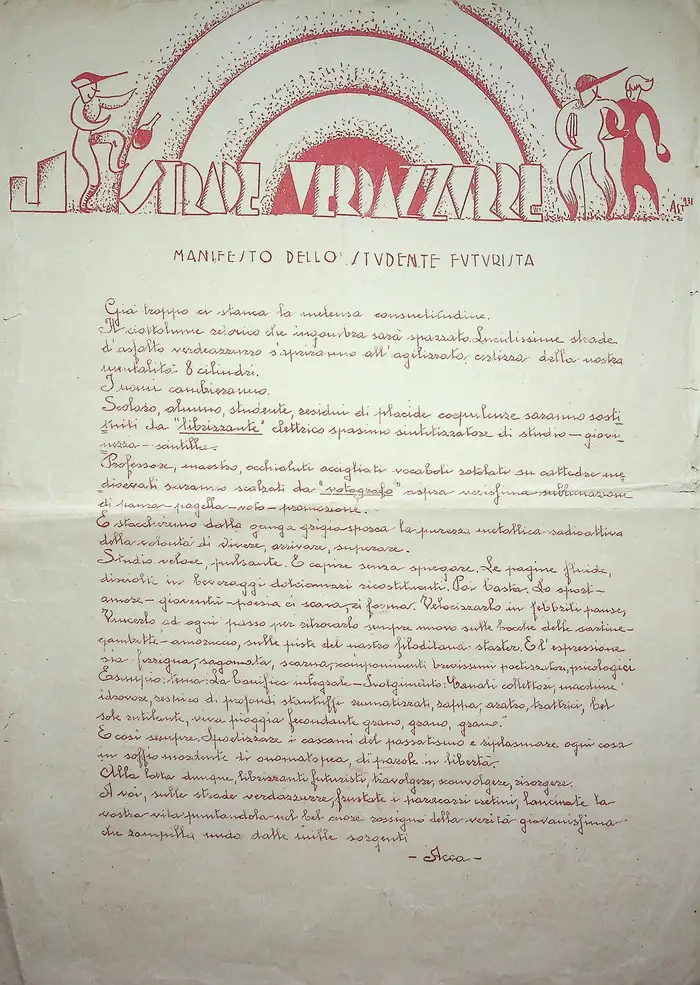 STRADE VERDAZZURRE
AST 931
MANIFESTO DELLO STUDENTE FUTURISTA
Già troppo ci stanca la melensa consuetudine.
Il ciottolume retorico che ingombra sarà spazzato. Lucidissime strade
d'asfalto verdeazzurro s'apriranno all'agilizzata certezza della nostra
mentalità 8 cilindri.
I nomi cambieranno.
Scolaro, alunno, studente, residui di placide coequlenze saranno sosti
tuiti da "librizzante" elettrico spasimo sintetizzatore di studio — giovi
nezza — scintilla.
Professore, maestro, occhialuti accigliati vocaboli rotolati su cattedre me
dioevali saranno scalzati da "votografo" aspra verissima sublimazione
di panza — pagella — voto — promozione.
E staccheremo dalla ganga grigia sporca la purezza metallica radioattiva
della volontà di vivere, arrivare, superare.
Studio veloce, pulsante. E capire senza spiegare. Le pagine fluide,
disciolte in beveraggi dolciamari ricostituenti. Poi basta. Lo sport —
amore — gioventù — poesia ci scava, ci forma. Velocizzarlo in febbrili pause,
Vincerlo ad ogni passo per ritrovarlo sempre nuovo sulle bocche delle sartine —
gambette — amoruccio, sulle piste del nostro filoditana starter. E l'espressione
sia ferrigna, sagomata, scarna, componimenti brevissimi poetizzatori, psicologici
Esempio: tema: La bonifica integrale — Svolgimento: "Canali collettori, macchine
idrovore, respiro di profondi stantuffi reumatizzati, zappa, aratro, trattrici, bel
sole rutilante, viva pioggia fecondante grano, grano, grano."
E così sempre. Spoetizzare i cascami del passatismo e riplasmare ogni cosa
in soffio mordente di onomatopea, di parole in libertà.
Alla lotta dunque, librizzanti futuristi, travolgere, sconvolgere, risorgere.
A voi, sulle strade verdazzurre, frustate i paracarri cretini, lanciate la
vostra vita puntandola nel bel cuore rossigno della verità giovanissima
che zampilla nuda dalle mille sorgenti
— Acca —